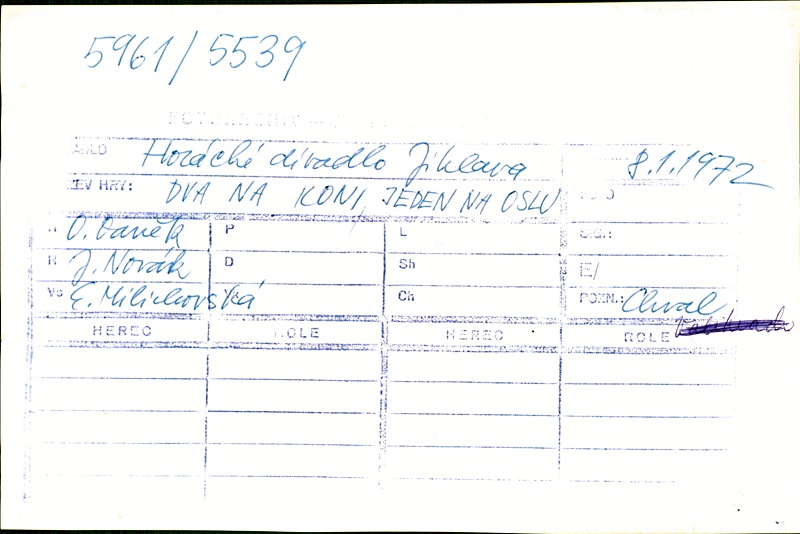 5961/5539
Horácké divadlo Jihlava 8.1.1972
EV HRY: DVA NA KONI, JEDEN NA OSLU
O. Daněk P L
R J. Novák D Sh E/
E. Milichovská Ch POZN.: Chval
HEREC ROLE HEREC ROLE